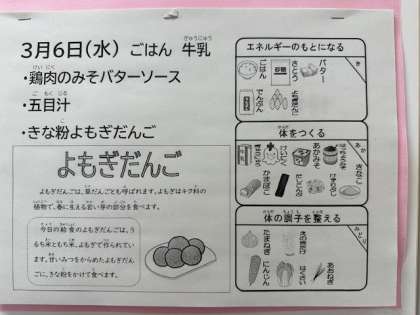 3月6日(水) ごはん 牛乳
・鶏肉のみそバターソース
・五目汁
・きな粉よもぎだんご
よもぎだんご
よもぎだんごは、草だんごとも呼ばれます。よもぎはキク科の
植物で、春に生える若い芽の部分を食べます。
今日の給食のよもぎだんごは、う
るち米ともち米、よもぎで作られてい
ます。甘いみつをからめたよもぎだん
ごに、きな粉をかけて食べます。
エネルギーのもとになる
き
ごはん
さとう
バター
でんぷん
体をつくる
あか
ぎゅうにゅう
けいにく
あかみそ
きなこ
かまぼこ
体の調子を整える
たまねぎ
にんじん
はくさい
あおねぎ